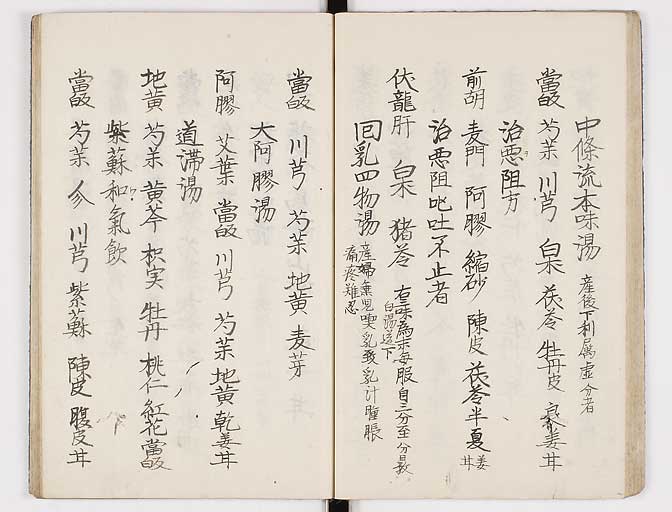 中條流本味湯 産後下利属虚分者
當皈 芍茱 川芎 白朮 茯苓 牡丹皮 姜 甘
治悪阻方
前胡 麦門 阿膠 縮砂 陳皮 茯苓 半夏 姜 甘
治悪阻吐不止者
伏龍肝 白朮 猪苓 右味為末毎服自二分至分 白湯送下
回乳四物湯 産婦無児喫乳致乳汁腫脹 痛疼難忍
當皈 川芎 芍茱 地黄 麦芽
大阿膠湯
阿膠 艾葉 當皈 川芎 芍茱 地黄 乾姜 甘
道滞湯
地黄 芍茱 黄芩 枳実 牡丹 桃仁 紅花 當皈
紫蘇和氣飲
當皈 芍茱 川芎 紫蘇 陳皮 腹皮 甘